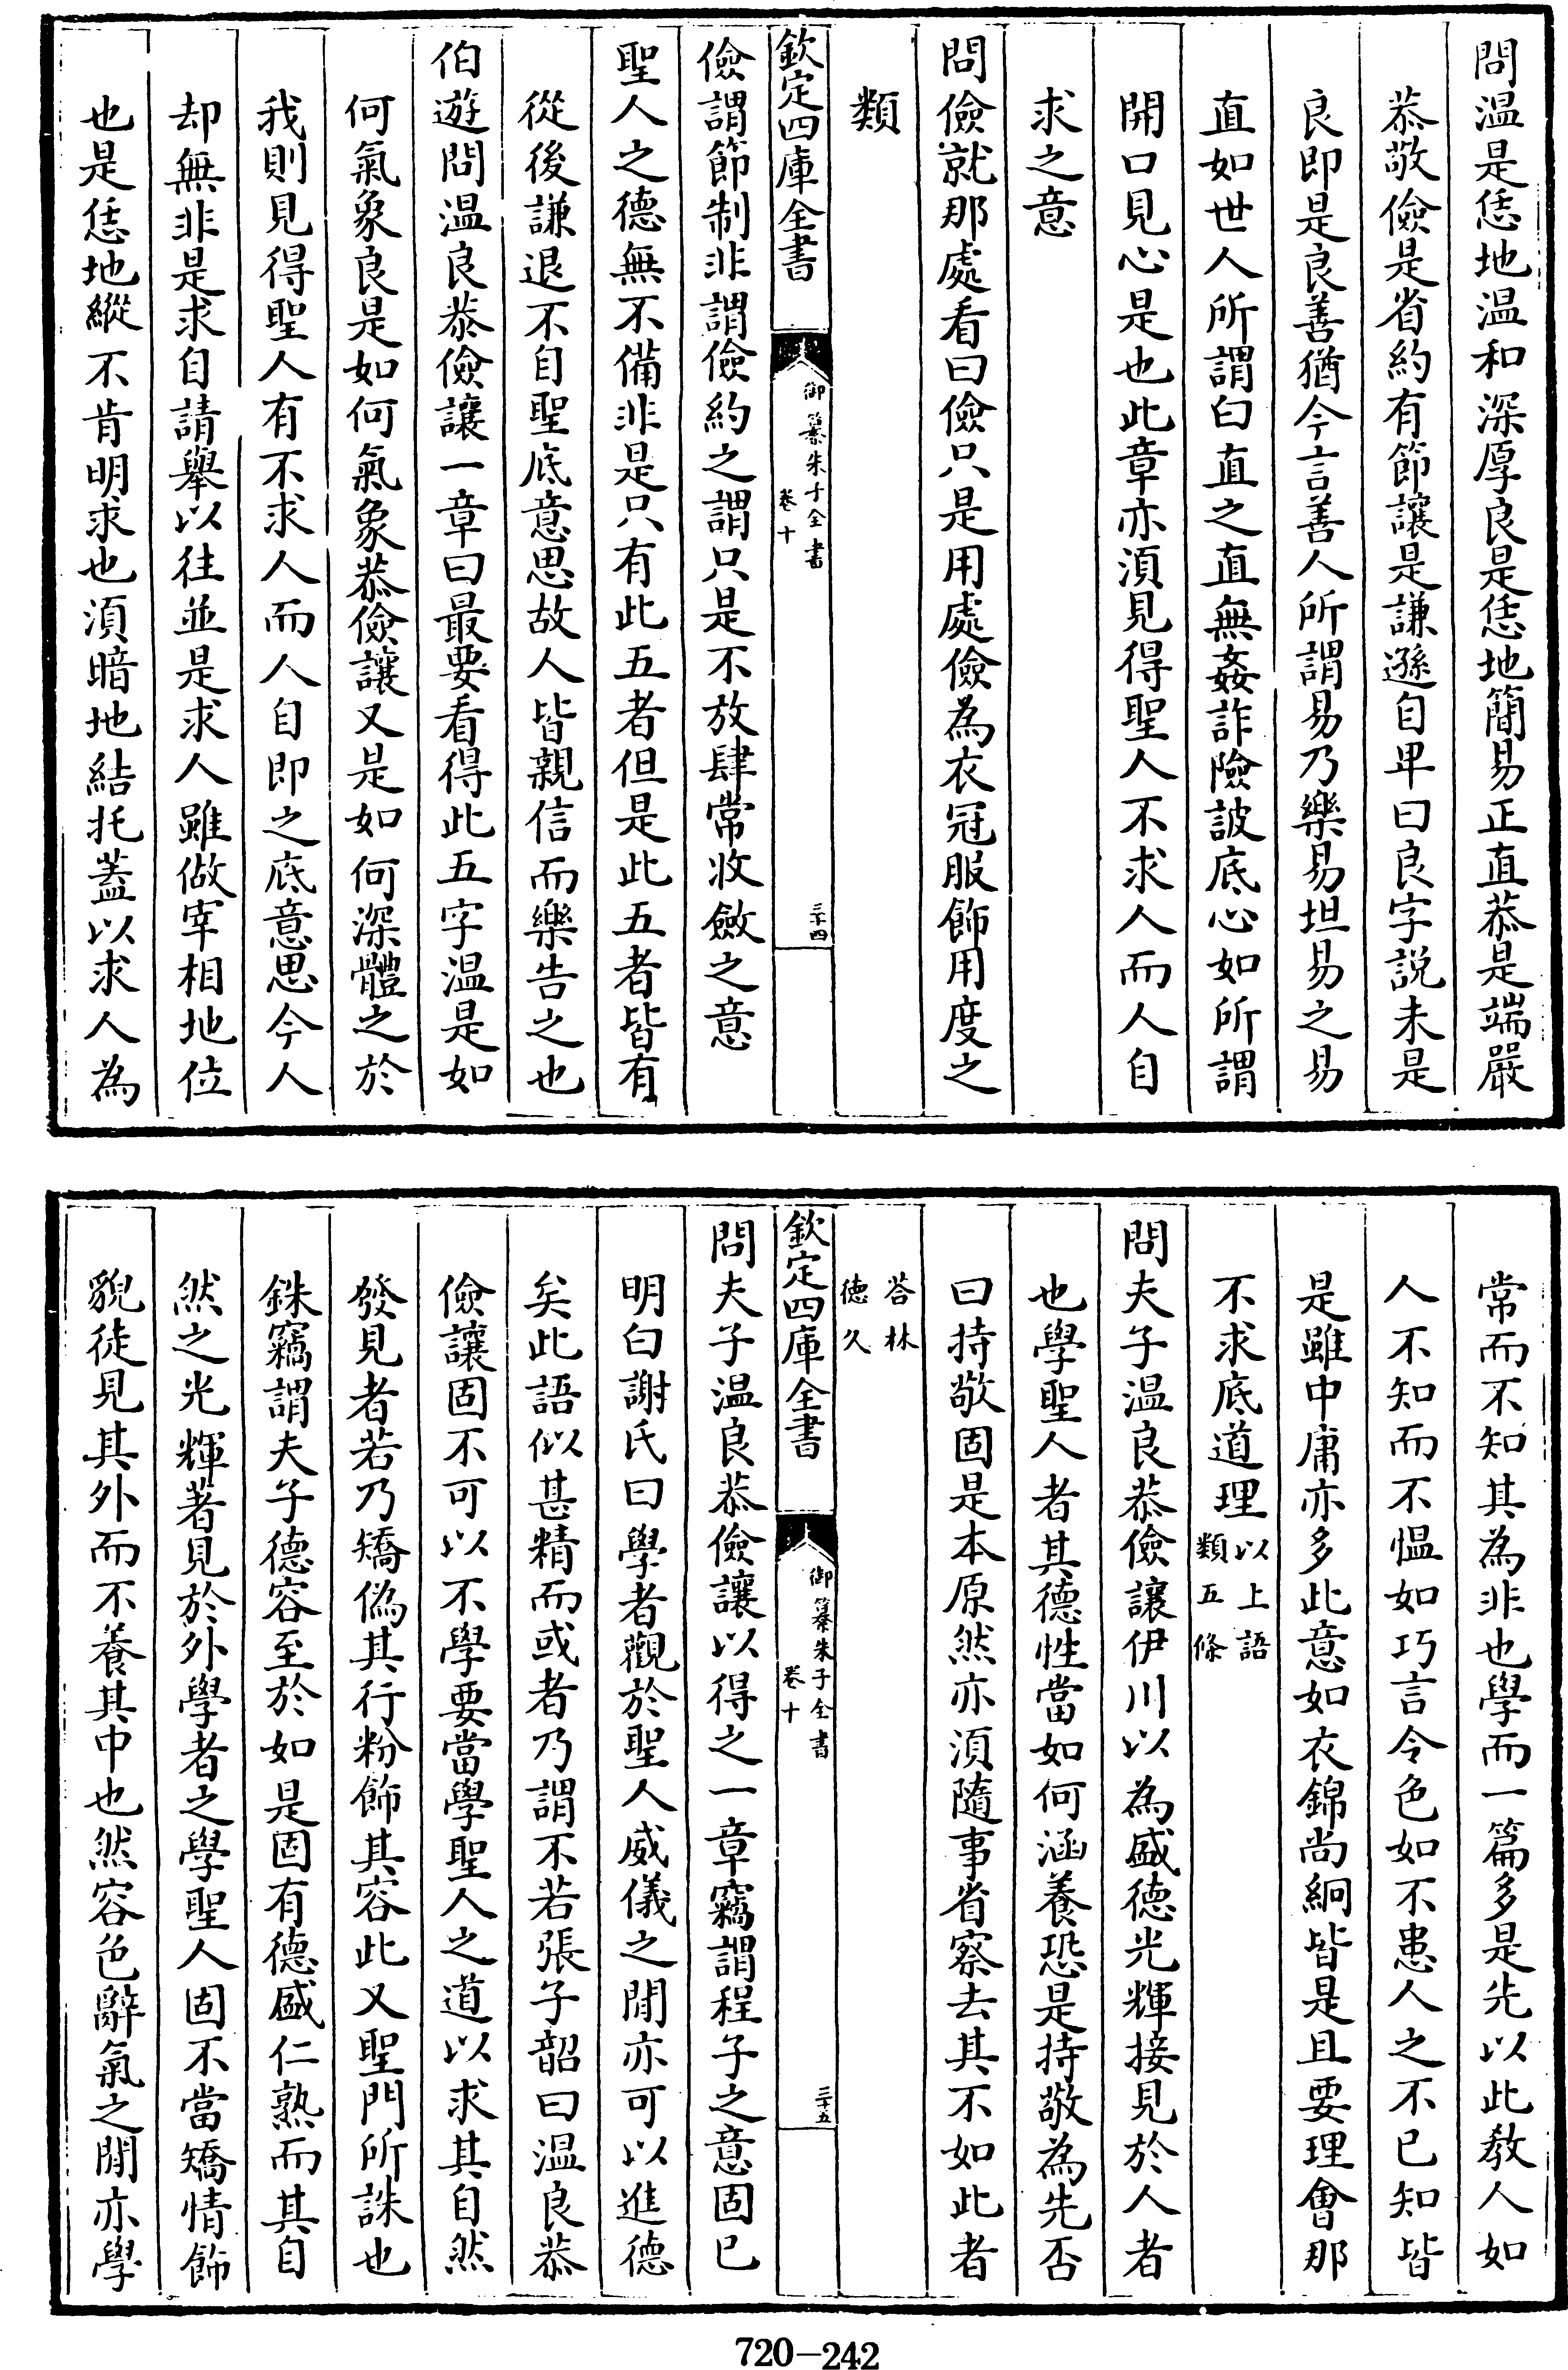 問温是恁地温和深厚良是恁地簡易正直恭是端嚴
恭敬儉是省約有節讓是謙遜自卑曰良字説未是
良即是良善猶今言善人所謂易乃樂易坦易之易
直如世人所謂白直之直無姦詐險詖底心如所謂
開口見心是也此章亦須見得聖人不求人而人自
求之意
問儉就那處看曰儉只是用處儉為衣冠服飾用度之
類
欽定四庫全書
御纂朱子全書
卷十
三十四
儉謂節制非謂儉約之謂只是不放肆常收斂之意
聖人之德無不備非是只有此五者但是此五者皆有
從後謙退不自聖底意思故人皆親信而樂告之也
伯遊問温良恭儉讓一章曰最要看得此五字温是如
何氣象良是如何氣象恭儉讓又是如何深體之於
我則見得聖人有不求人而人自即之底意思今人
却無非是求自請舉以往並是求人雖做宰相地位
也是恁地縱不肯明求也須暗地結托蓋以求人為
常而不知其為非也學而一篇多是先以此教人如
人不知而不愠如巧言令色如不患人之不己知皆
是雖中庸亦多此意如衣錦尚絅皆是且要理會那
不求底道理以上語類五條
問夫子温良恭儉讓伊川以為盛德光輝接見於人者
也學聖人者其德性當如何涵養恐是持敬為先否
曰持敬固是本原然亦須隨事省察去其不如此者
荅林德久
欽定四庫全書
御纂朱子全書
卷十
三十五
問夫子温良恭儉讓以得之一章竊謂程子之意固已
明白謝氏曰學者觀於聖人威儀之閒亦可以進德
矣此語似甚精而或者乃謂不若張子韶曰温良恭
儉讓固不可以不學要當學聖人之道以求其自然
發見者若乃矯偽其行粉飾其容此又聖門所誅也
銖竊謂夫子德容至於如是固有德盛仁熟而其自
然之光輝著見於外學者之學聖人固不當矯情飾
貌徒見其外而不養其中也然容色辭氣之閒亦學
720-242